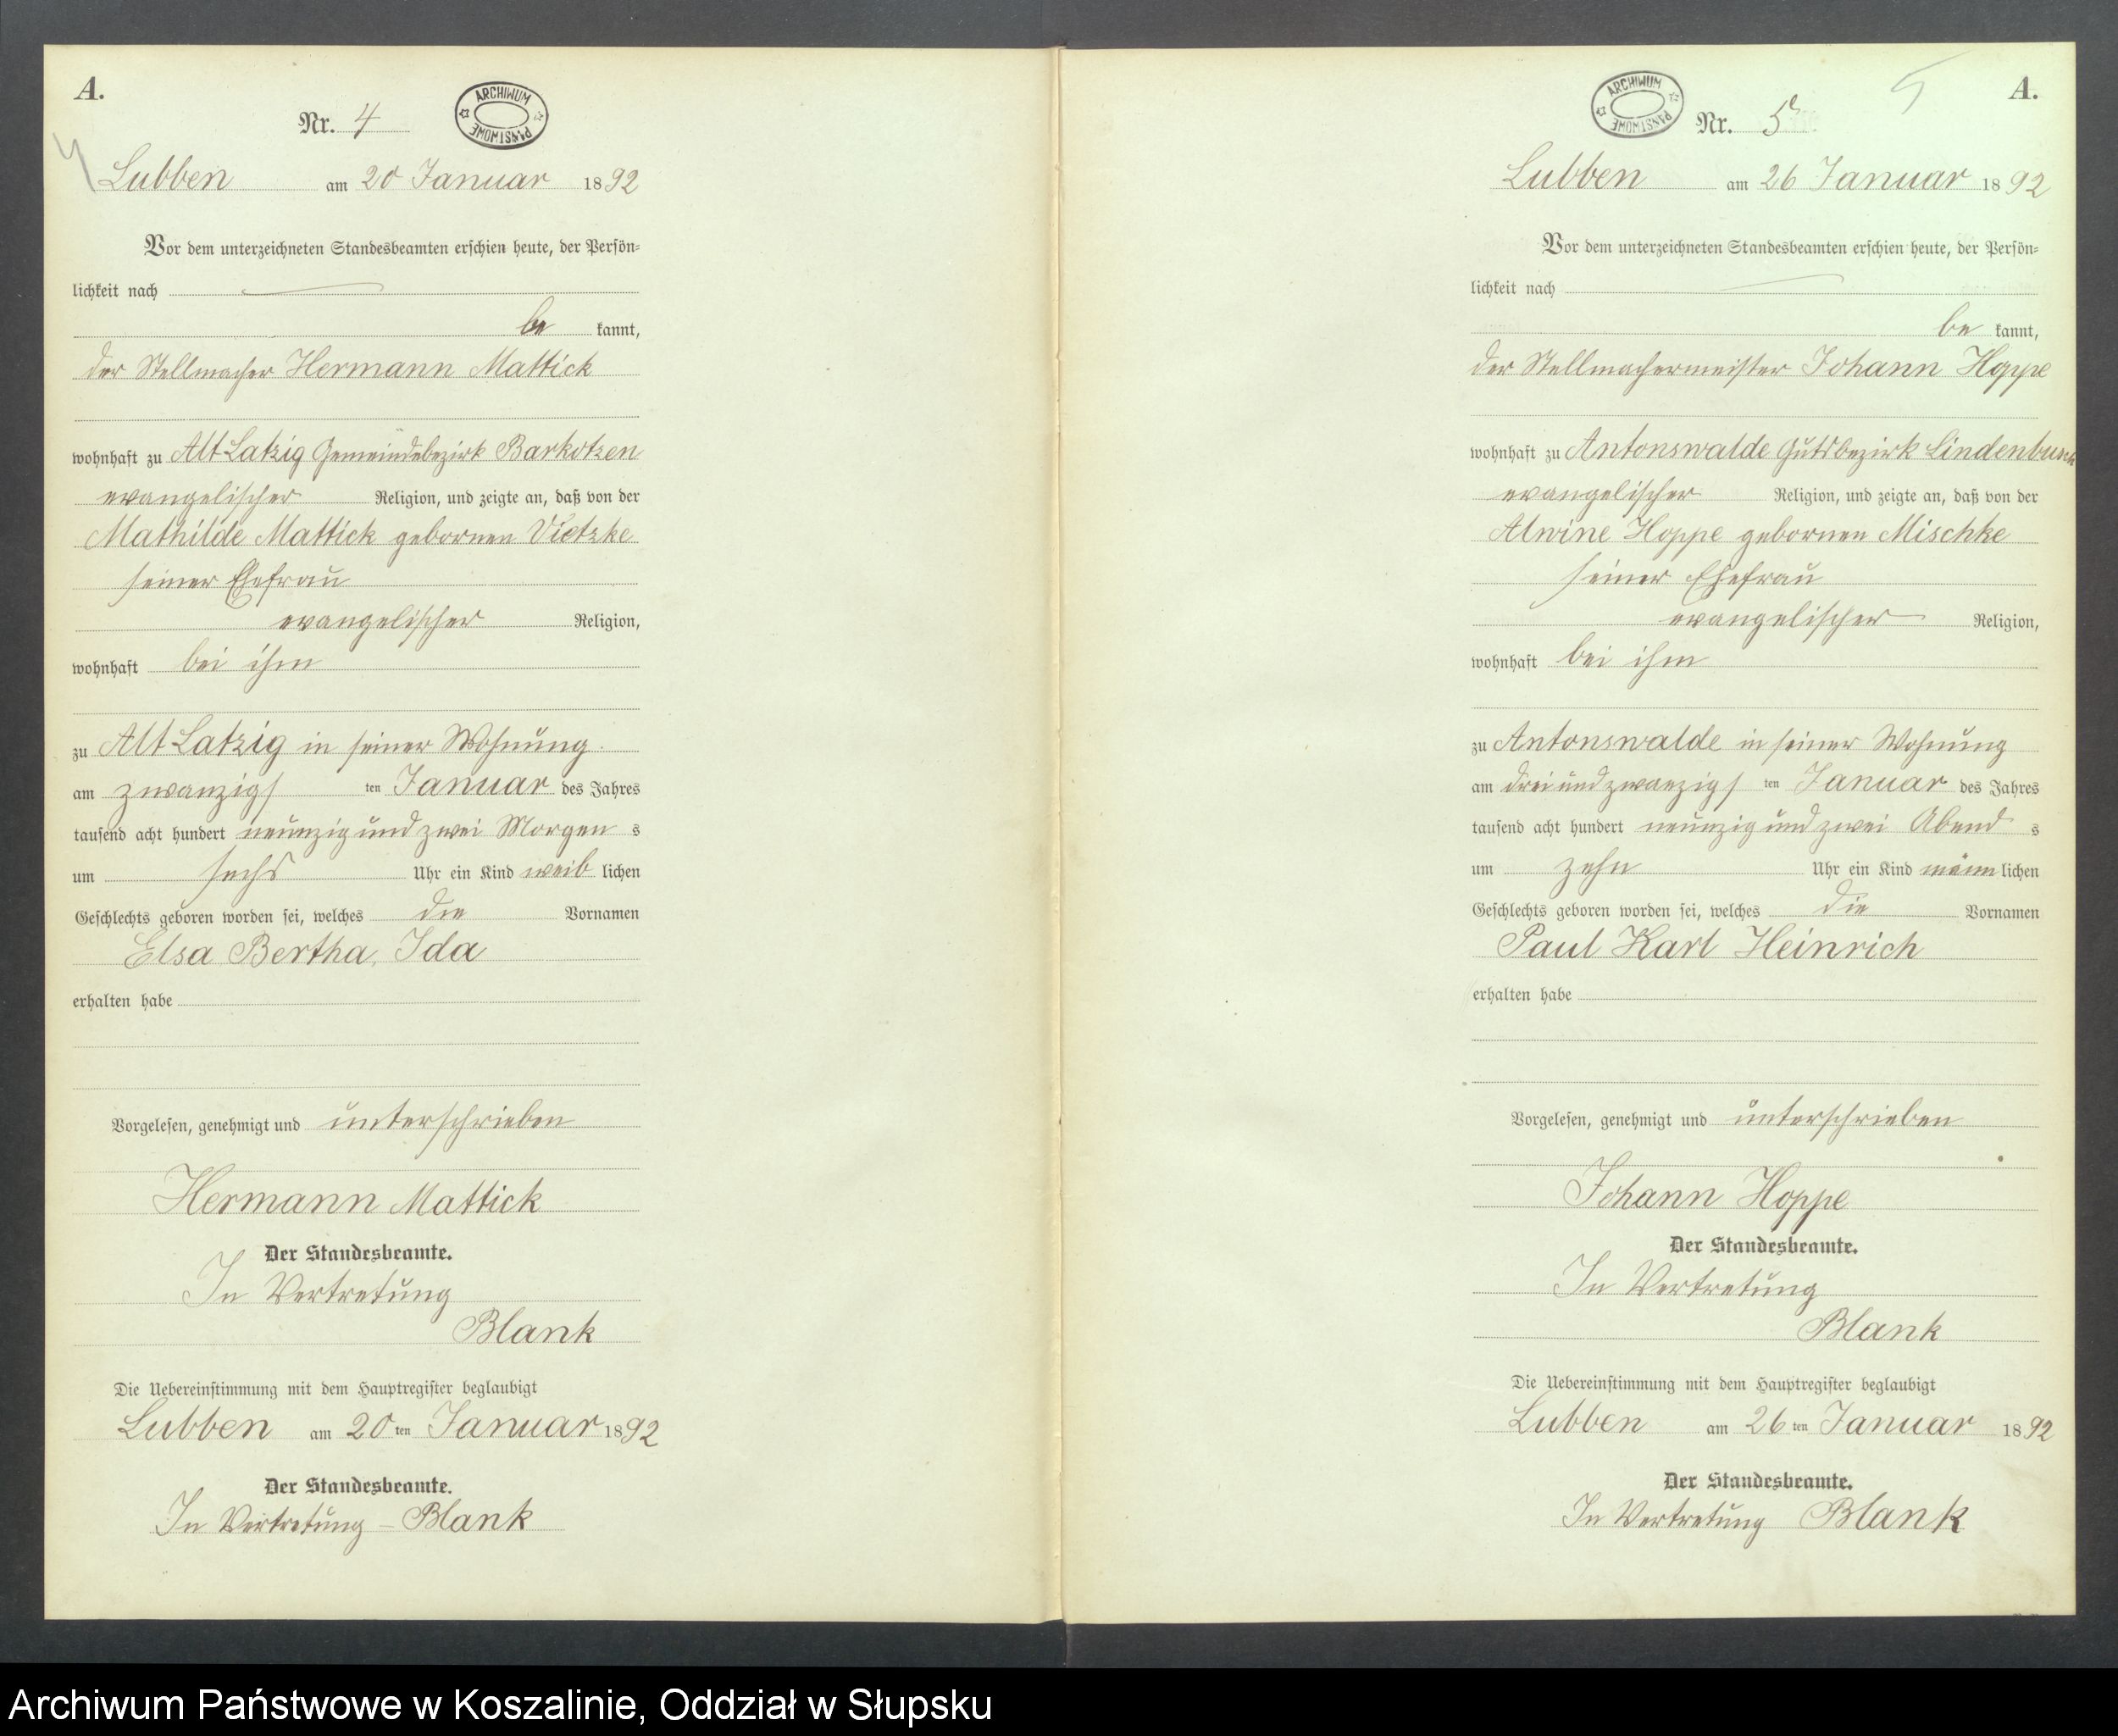 A.
Nr. 4
ARCHIWUM PAŃSTWOWE
4
Lubben am 20 Januar 1892
Vor dem unterzeichneten Standesbeamten erschien heute, der Persön=
lichkeit nach
be kannt,
der Stellmacher Hermann Mattick
wohnhaft zu Alt Latzig Gemeindebezirk Barkotzen
evangelischer Religion, und zeigte an, daß von der
Mathilde Mattick gebornen Vietzke
seiner Ehefrau
evangelischer Religion,
wohnhaft bei ihm
zu Alt Latzig in seiner Wohnung
am zwanzigs ten Januar des Jahres
tausend acht hundert neunzig und zwei Morgen s
um sechs Uhr ein Kind weib lichen
Geschlechts geboren worden sei, welches die Vornamen
Elsa Bertha, Ida
erhalten habe
Vorgelesen, genehmigt und unterschrieben
Hermann Mattick
Der Standesbeamte.
In Vertretung
Blank
Die Uebereinstimmung mit dem Hauptregister beglaubigt
Lubben am 20 ten Januar 1892
Der Standesbeamte.
In Vertretung – Blank
A.
5
ARCHIWUM PAŃSTWOWE
Nr. 5
Lubben am 26 Januar 1892
Vor dem unterzeichneten Standesbeamten erschien heute, der Persön=
lichkeit nach
be kannt,
der Stellmachermeister Johann Hoppe
wohnhaft zu Antonswalde Gutsbezirk Lindenbusch
evangelischer Religion, und zeigte an, daß von der
Alwine Hoppe gebornen Mischke
seiner Ehefrau
evangelischer Religion,
wohnhaft bei ihm
zu Antonswalde in seiner Wohnung
am drei und zwanzigs ten Januar des Jahres
tausend acht hundert neunzig und zwei Abend s
um zehn Uhr ein Kind männ lichen
Geschlechts geboren worden sei, welches die Vornamen
Paul Karl Heinrich
erhalten habe
Vorgelesen, genehmigt und unterschrieben
Johann Hoppe
Der Standesbeamte.
In Vertretung
Blank
Die Uebereinstimmung mit dem Hauptregister beglaubigt
Lubben am 26 ten Januar 1892
Der Standesbeamte.
In Vertretung Blank
Archiwum Państwowe w Koszalinie, Oddział w Słupsku